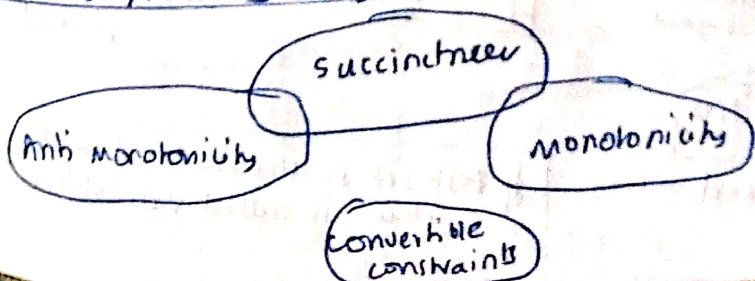 Succinctness
Anti monotonicity
monotonicity
convertible
constraints